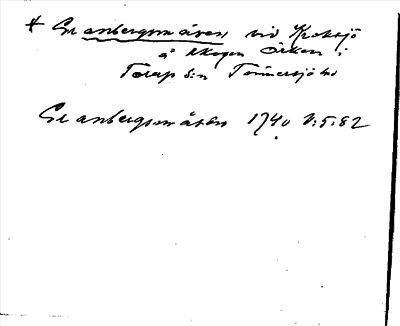 # Granbergsmåsen vid Kroksjö
å skogen Örken i
Torup s:n Tönnersjö hd
Granbergsmåsen 1740 V:5:82